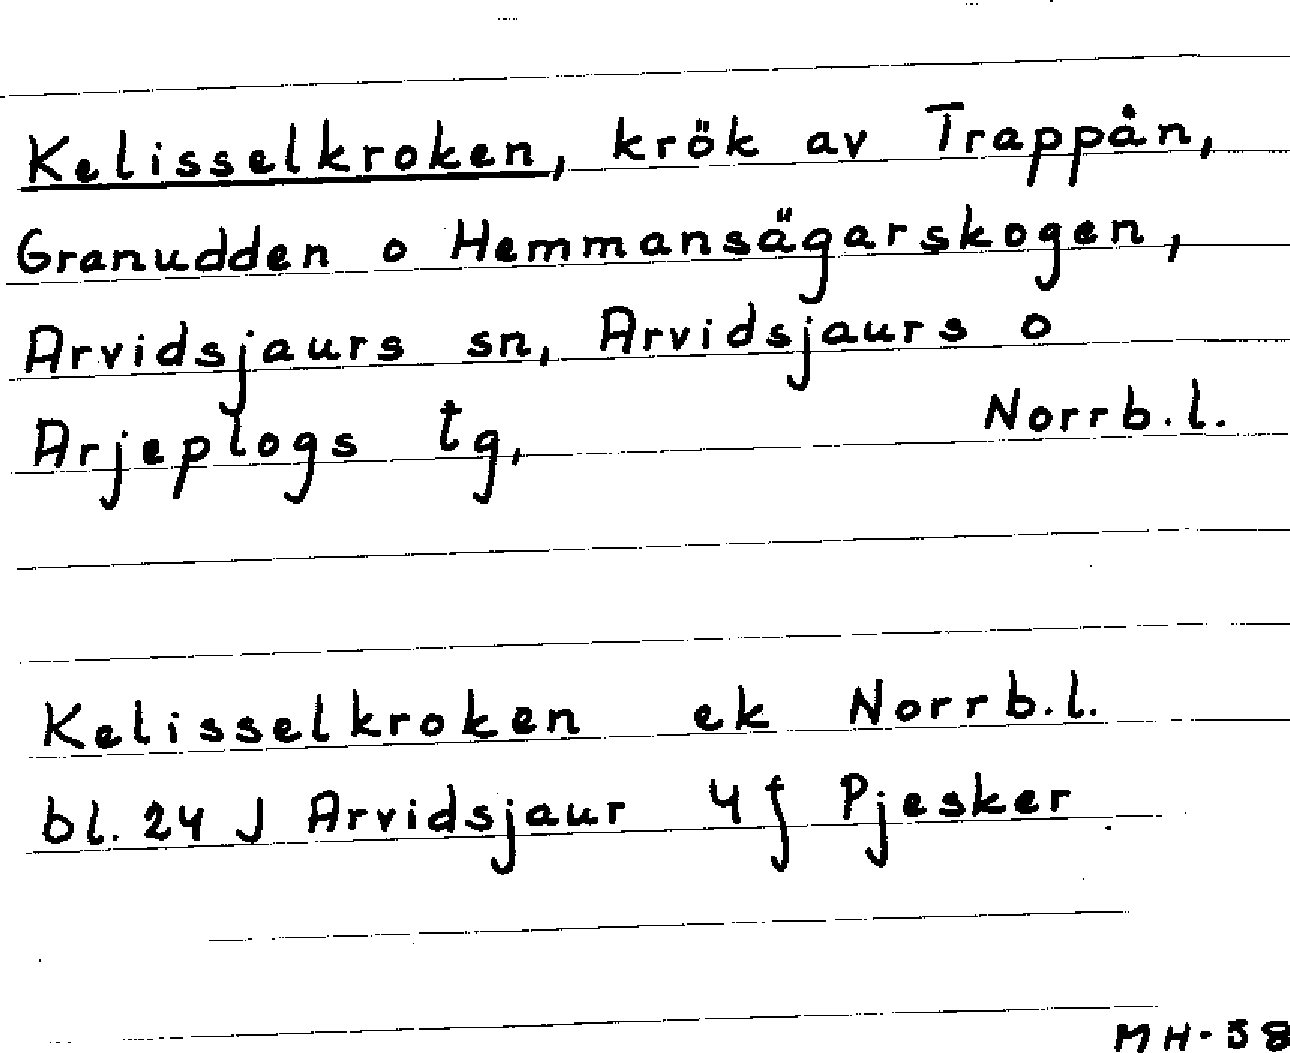 Kelisselkroken, krök av Trappån,
Granudden o Hemmansägarskogen,
Arvidsjaurs sn, Arvidsjaurs o
Arjeplogs tg, Norrb.l.
Kelisselkroken ek Norrb.l.
bl. 24 J Arvidsjaur 4 f Pjesker
MH-58